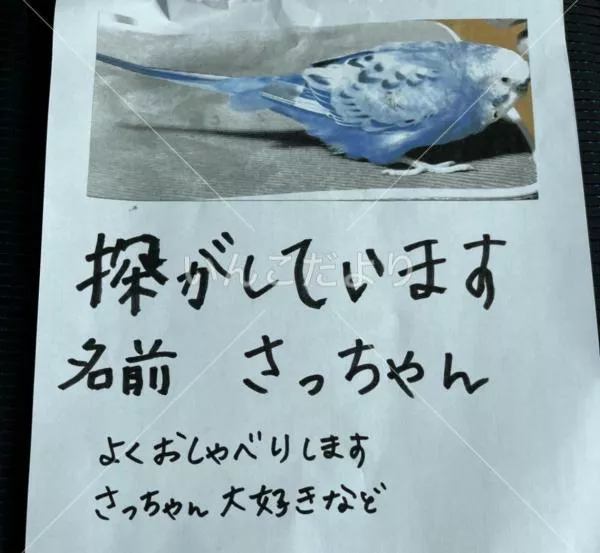 探がしています
いんこだより
名前 さっちゃん
よくおしゃべりします
さっちゃん大好きなど